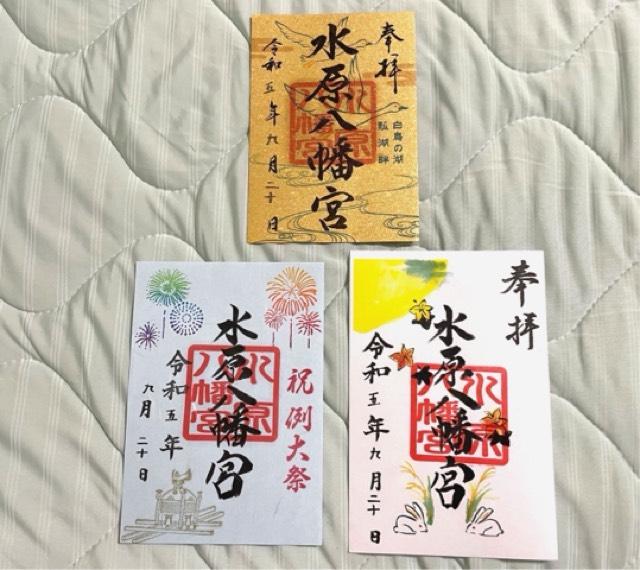 奉拝
白鳥の湖
瓢湖畔
水原八幡宮
水原八幡宮
令和五年九月二十日
祝例大祭
水原八幡宮
水原八幡宮
令和五年
九月二十日
奉拝
水原八幡宮
水原八幡宮
令和五年九月二十日